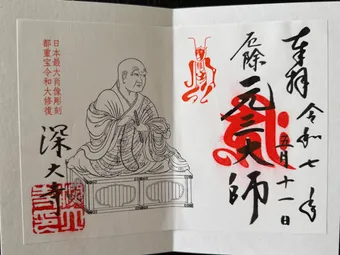 奉拝 令和七年
五月十一日
厄除 元三大師
日本最大肖像彫刻
都重宝令和大修復
深大寺